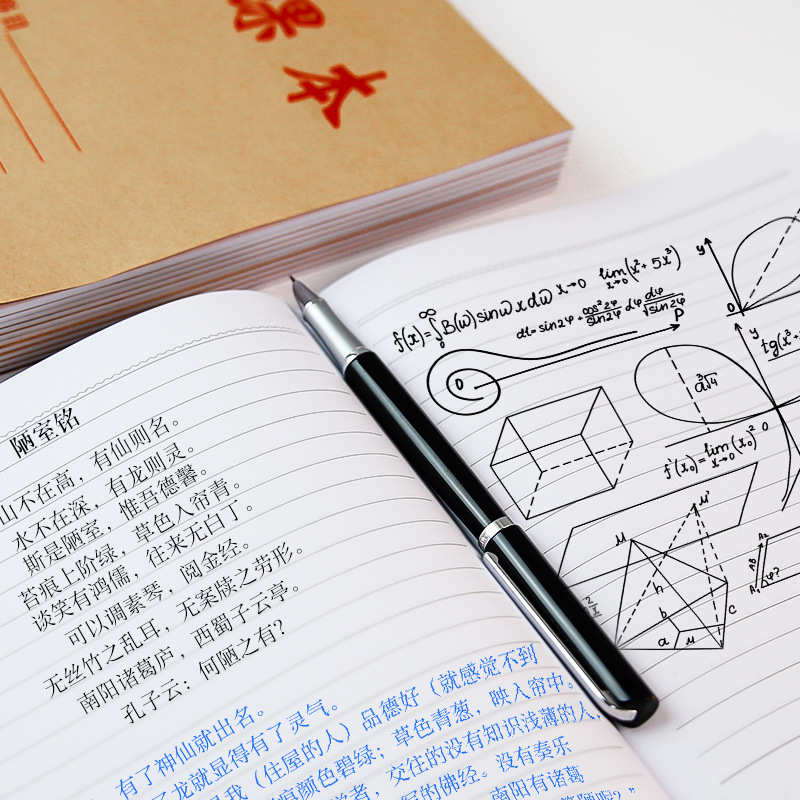 课本
陋室铭
山不在高，有仙则名。
水不在深，有龙则灵。
斯是陋室，惟吾德馨。
苔痕上阶绿，草色入帘青。
谈笑有鸿儒，往来无白丁。
可以调素琴，阅金经。
无丝竹之乱耳，无案牍之劳形。
南阳诸葛庐，西蜀子云亭。
孔子云：何陋之有？
有了神仙就出名。
龙就显得有了灵气。
我（住屋的人）品德好（就感觉不到
痕颜色碧绿；草色青葱，映入帘中。
学者，交往的没有知识浅薄的人，
的佛经。没有奏乐
南阳有诸葛
f(x)=∫₀^∞ B(ω)sinωxdω x→0 lim x→0 (x²+5x³)
P
O
y
O
y
tg(x³
³√4
O
f'(x₀)=lim x→0 (x₀)²
M'
M
h
b
c
a
M
A₂
AB
A₁
φ?